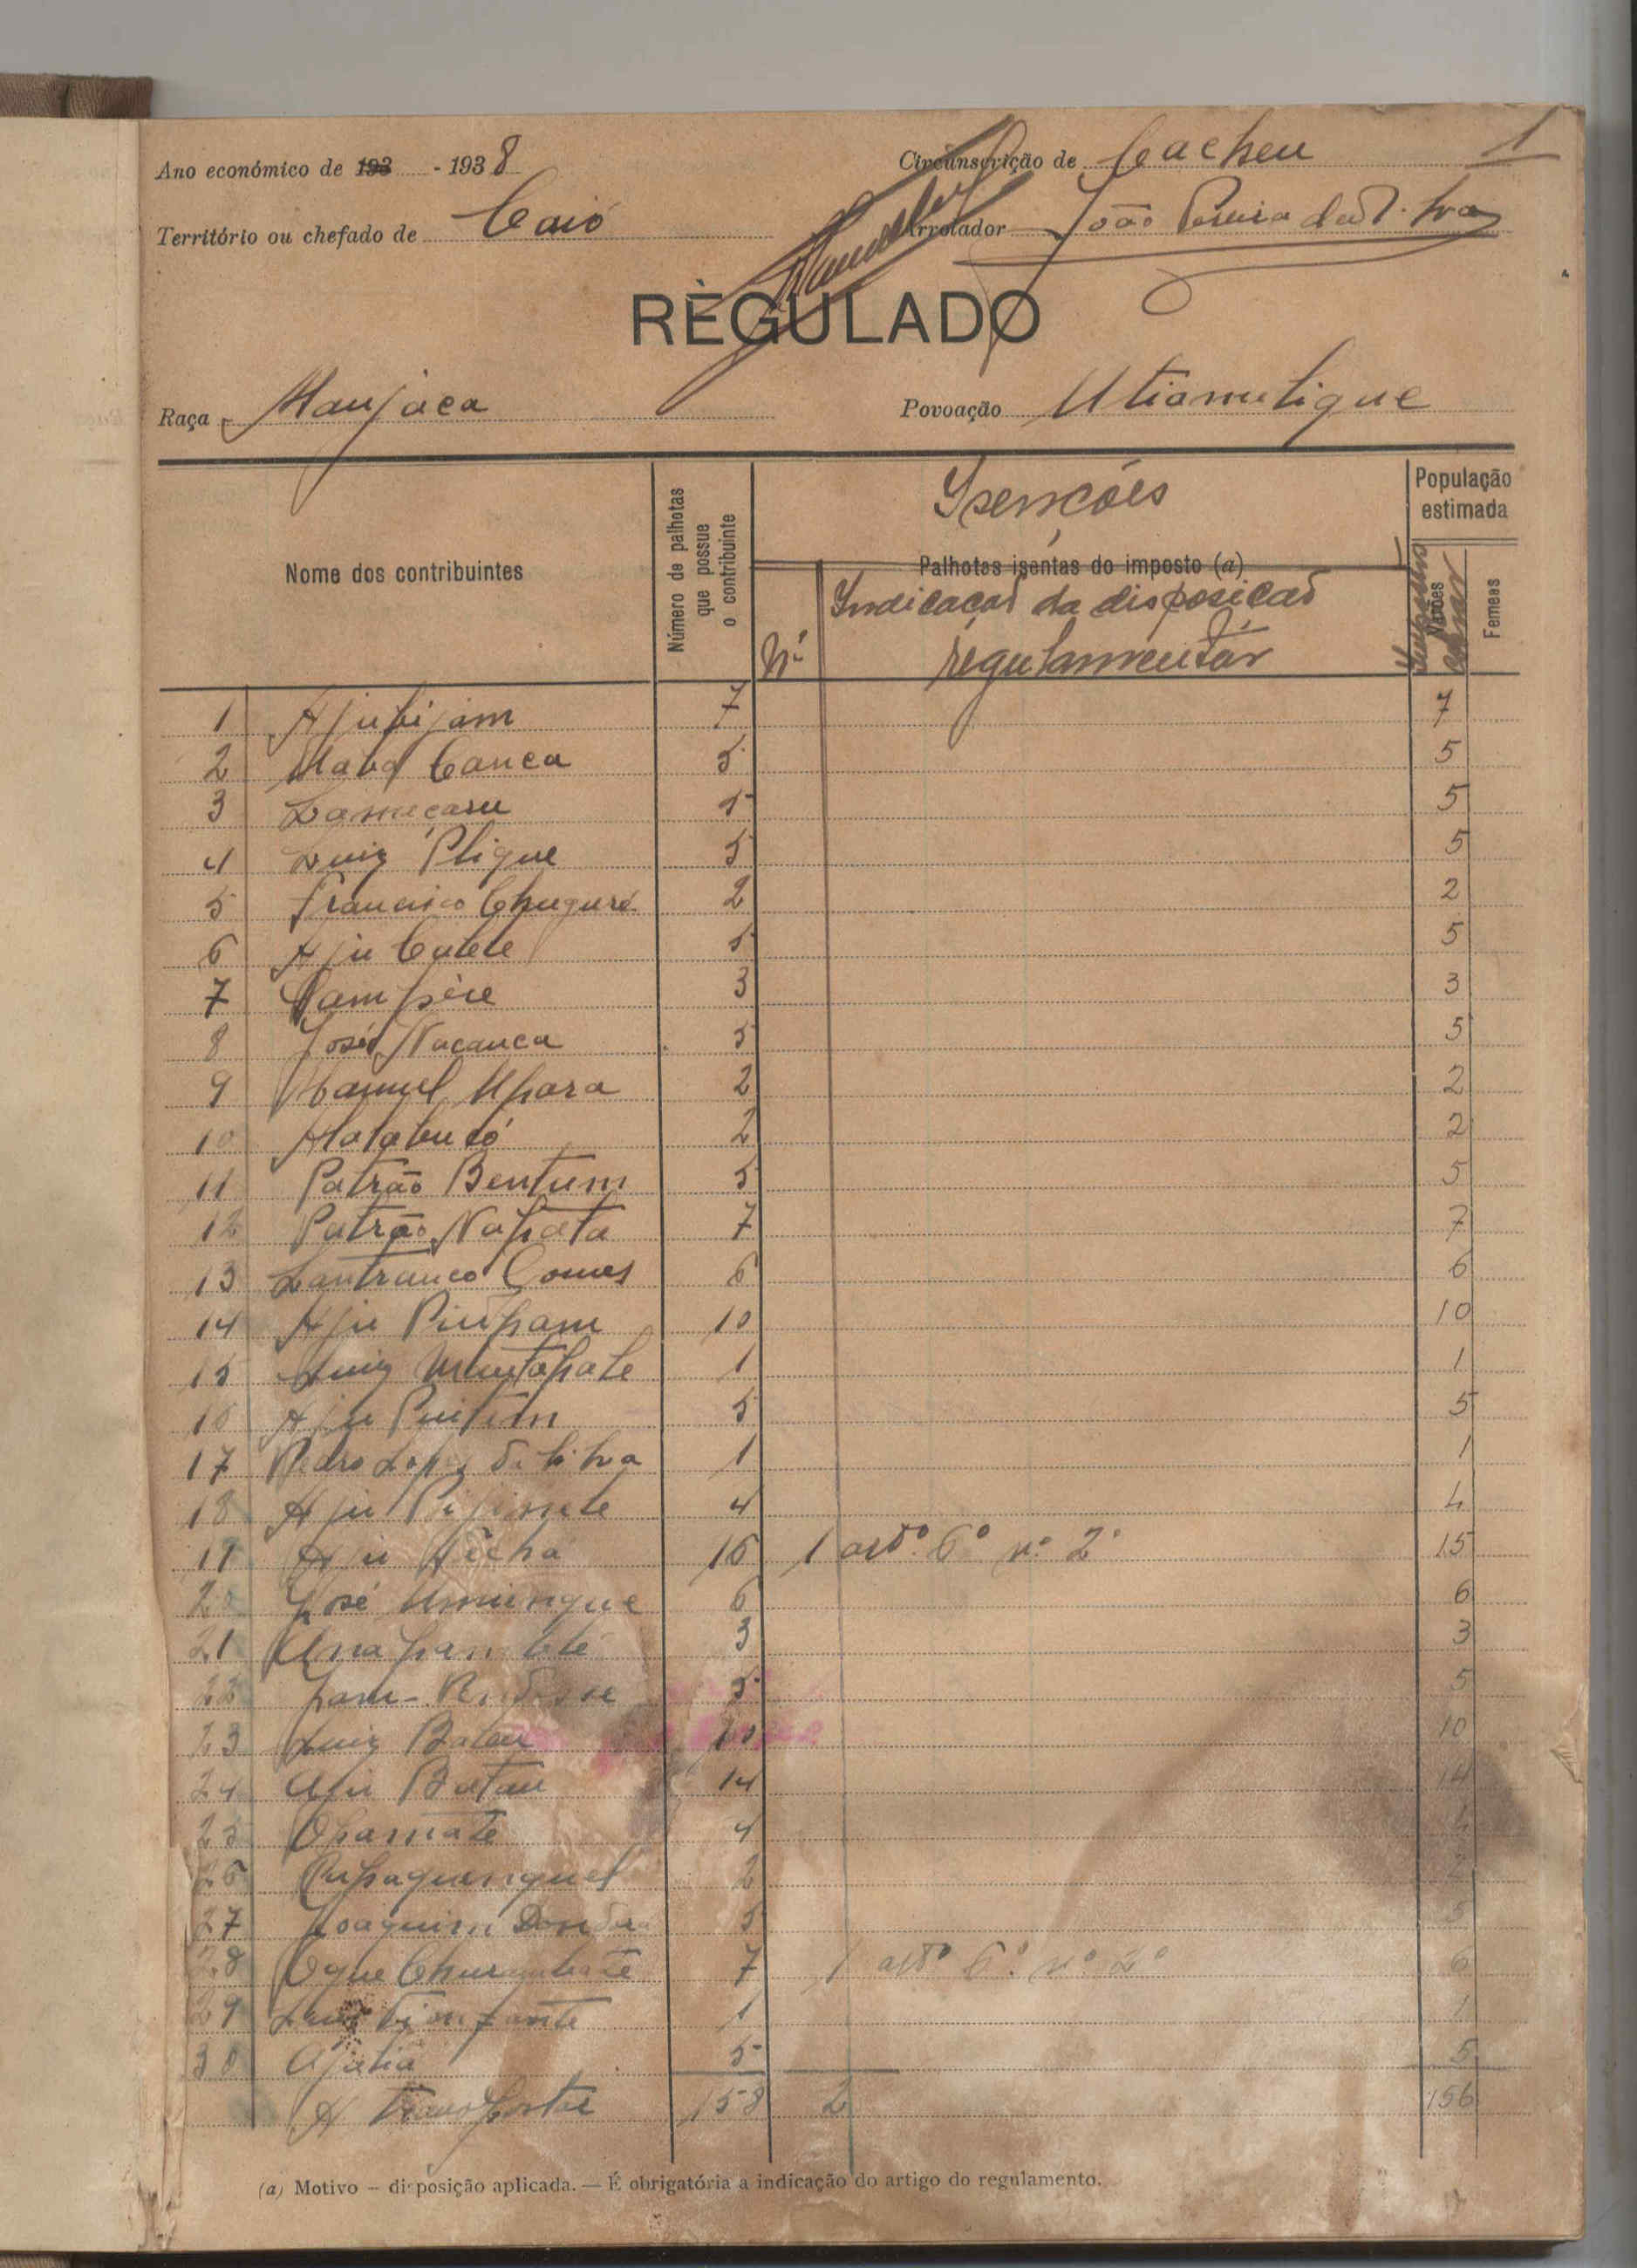 Ano económico de 193 - 1938 Circunscrição de Cacheu 1
Território ou chefado de Caió Arrolador João Pereira da Silva
RÈGULADO
Raça Manjaca Povoação Utiamutique
Nome dos contribuintes
Número de palhotas que possue o contribuinte
Isenções
Palhotas isentas do imposto (a)
Nº Indicação da disposição regulamentar
População estimada
Varões
Femeas
1 Ajubijam 7 7
2 Mabá Canca 5 5
3 Lamucasu 5 5
4 Luiz Plique 5 5
5 Francisco Chuguré 2 2
6 Aju Catete 5 5
7 3 3
8 José Nacanca 5 5
9 Manuel Upara 2 2
10 2 2
11 Patrão Bentum 5 5
12 Patrão Napata 7 7
13 Lanfranco Gomes 6 6
14 Aju Pinpam 10 10
15 Luiz 1 1
16 Aju 5 5
17 Pedro Lopes da Silva 1 1
18 Aju 4 4
19 Aju 16 1 artº. 6º nº 2º 15
20 José Umingue 6 6
21 3 3
22 5 5
23 Luiz Batau 10 10
24 Aju Batau 14 14
25 4 4
26 2 2
27 Joaquim 5 5
28 7 1 artº 6º. nº 2º 6
29 1 1
30 5 5
A transportar 158 2 156
(a) Motivo – disposição aplicada. — É obrigatória a indicação do artigo do regulamento.